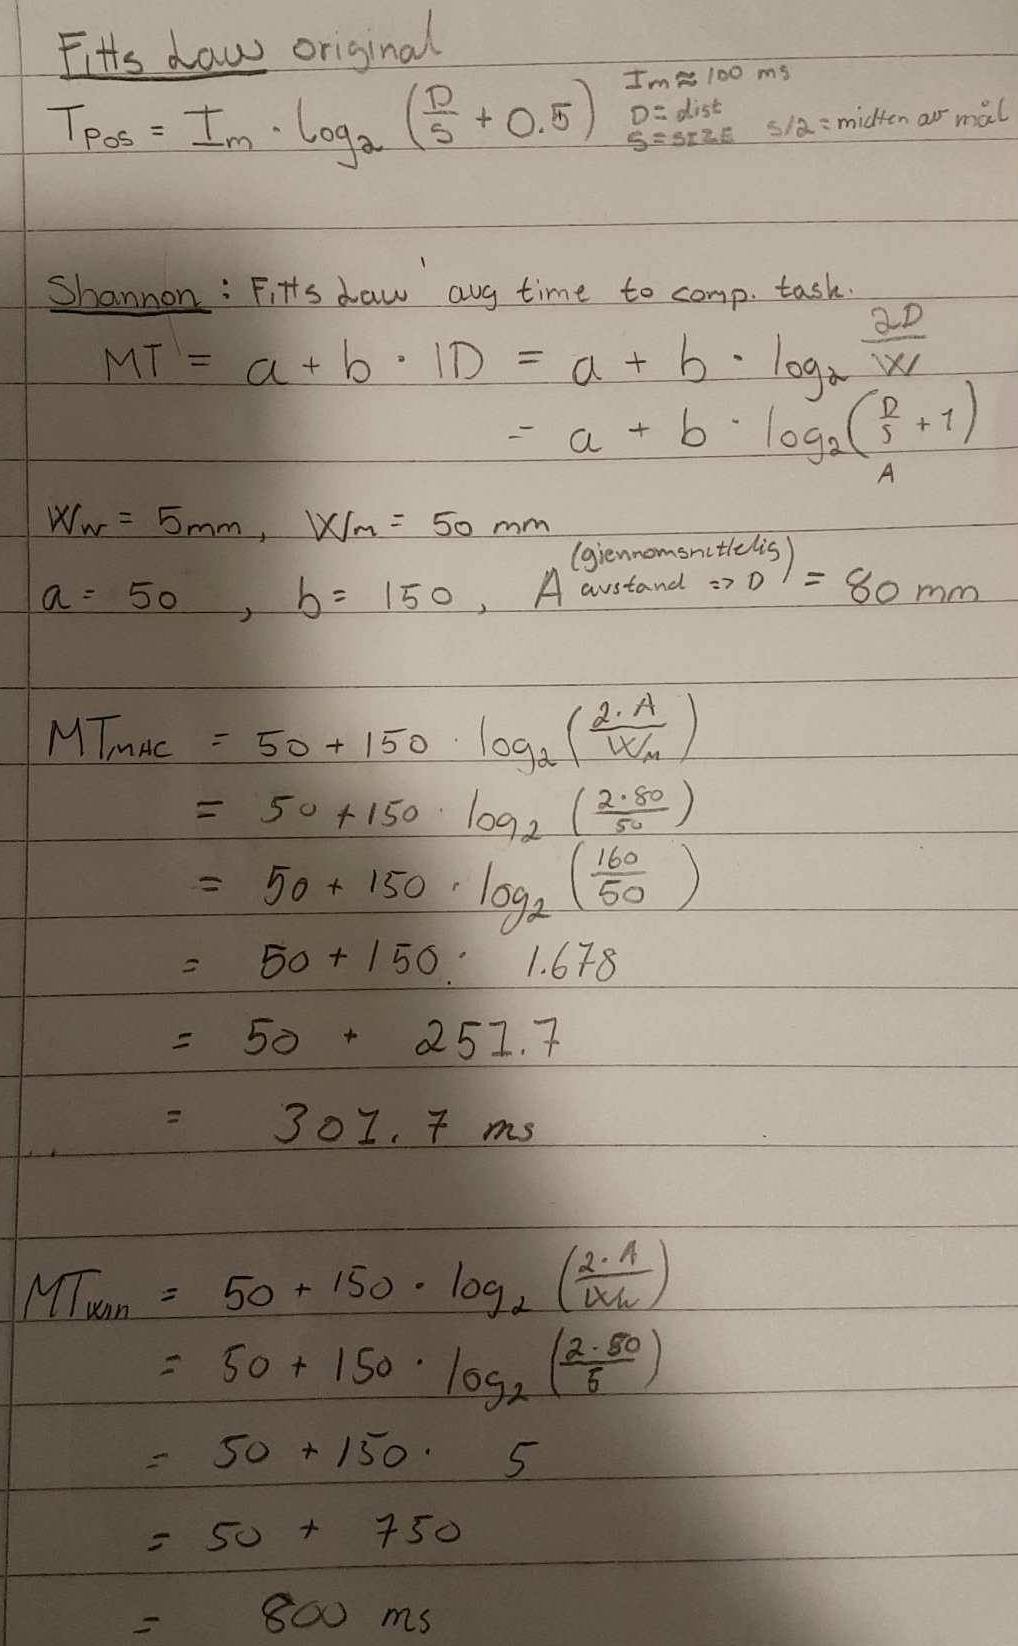 Fitts Law original
T_Pos = I_m · log_2 (D/S + 0.5)
I_m ≈ 100 ms
D = dist
S = SIZE S/2 = midten av mål
Shannon: Fitts Law avg time to comp. task.
MT = a + b · ID = a + b · log_2 2D/W
= a + b · log_2 (D/S + 1)
A
W_w = 5mm, W_m = 50 mm
a = 50, b = 150, A (gjennomsnittelig avstand => D) = 80 mm
MT_MAC = 50 + 150 · log_2 (2·A/W_M)
= 50 + 150 · log_2 (2·80/50)
= 50 + 150 · log_2 (160/50)
= 50 + 150 · 1.678
= 50 + 251.7
= 301.7 ms
MT_Win = 50 + 150 · log_2 (2·A/W_w)
= 50 + 150 · log_2 (2·80/5)
= 50 + 150 · 5
= 50 + 750
= 800 ms